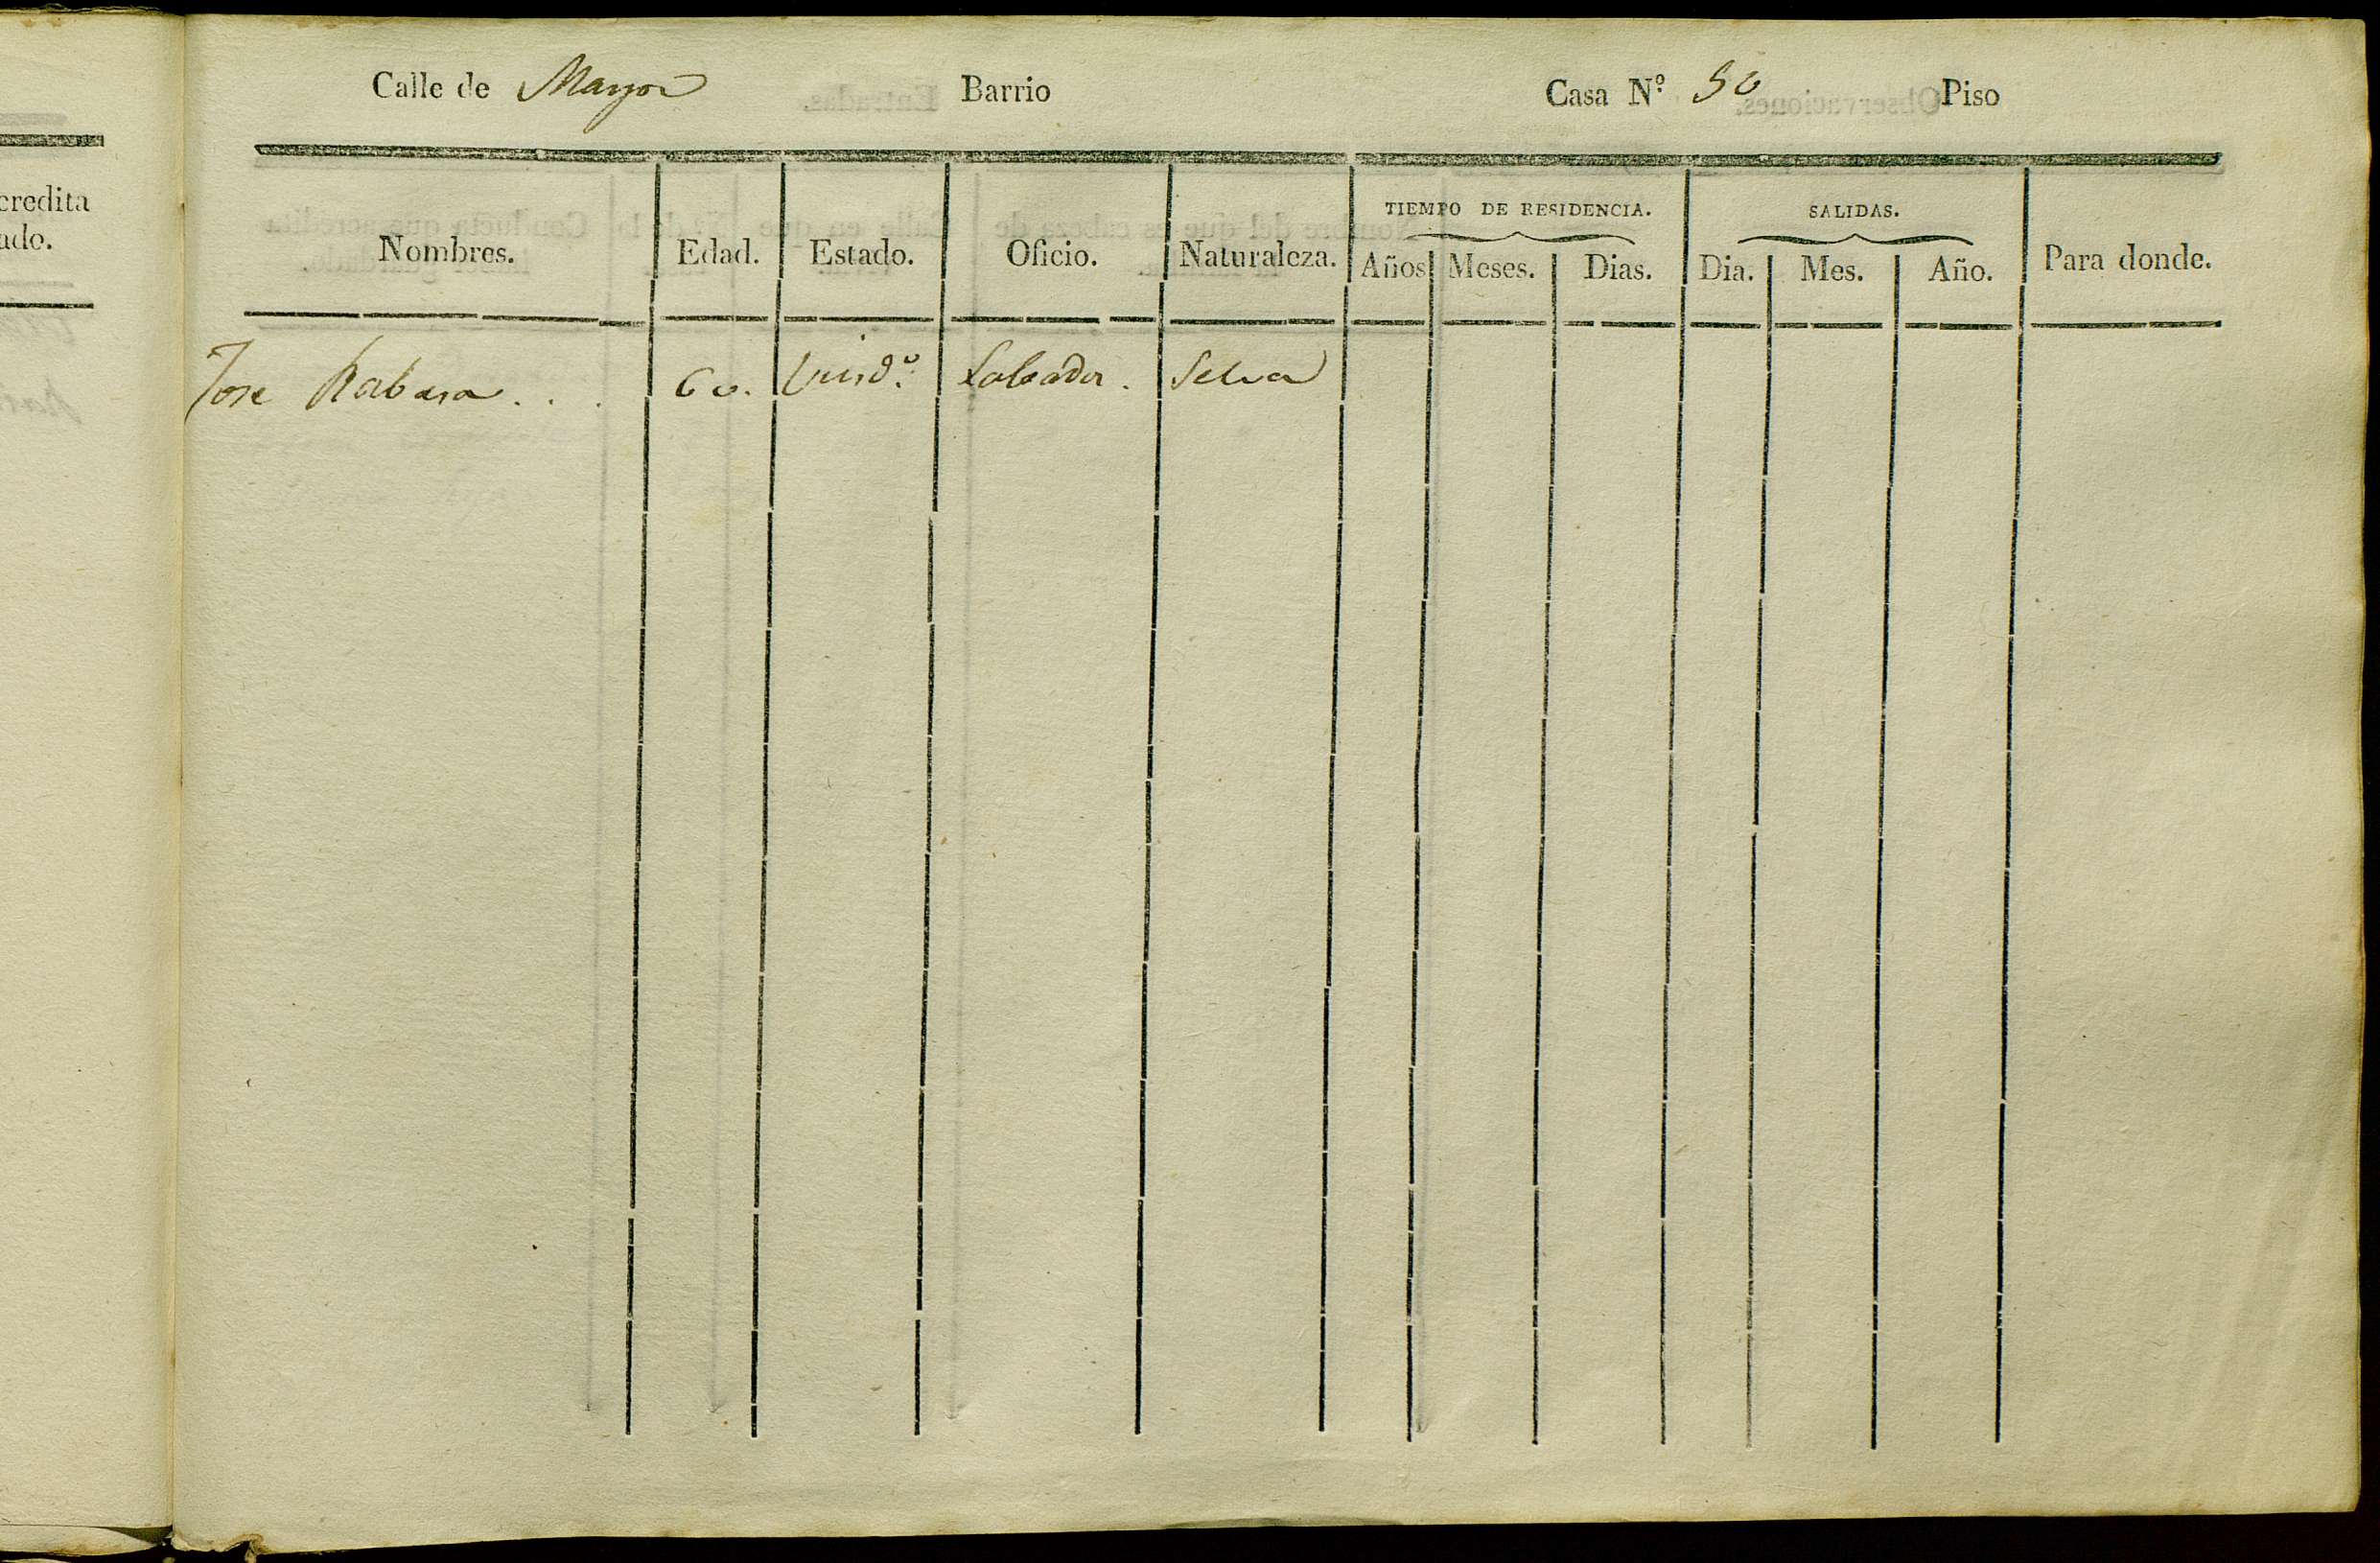 Calle de Mayor Barrio Casa N.º 50 Piso
credita
ado.
TIEMPO DE RESIDENCIA. SALIDAS.
Nombres. Edad. Estado. Oficio. Naturaleza. Años Meses. Dias. Dia. Mes. Año. Para donde.
Jose Rabasa . . . 60. Viud.º Labrador. Selva